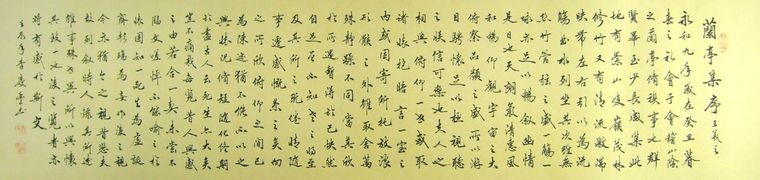 蘭亭集序 王羲之
永和九年歲在癸丑暮
春之初會于會稽山陰
之蘭亭脩稧事也群
賢畢至少長咸集此
地有崇山峻嶺茂林
修竹又有清流激湍
映帶左右引以為流
觴曲水列坐其次雖無
絲竹管弦之盛一觴一
詠亦足以暢敘幽情
是日也天朗氣清惠風
和暢仰觀宇宙之大
俯察品類之盛所以遊
目騁懷足以極視聽
之娛信可樂也夫人之
相與俯仰一世或取
諸懷抱晤言一室之
內或因寄所託放浪
形骸之外雖取舍萬
殊靜躁不同當其欣
於所遇暫得於己快然
自足不知老之將至
及其所之既倦情隨
事遷感慨系之矣向
之所欣俯仰之間已
為陳迹猶不能不以之
興懷況修短隨化終期
於盡古人云死生亦大矣
豈不痛哉每覽昔人興感
之由若合一契未嘗不
臨文嗟悼不能喻之於
懷固知一死生為虛誕
齊彭殤為妄作後之視
今亦猶今之視昔悲夫
故列敘時人錄其所述
雖世殊事異所以興懷
其致一也後之覽者亦
將有感於斯文
壬辰年李慶